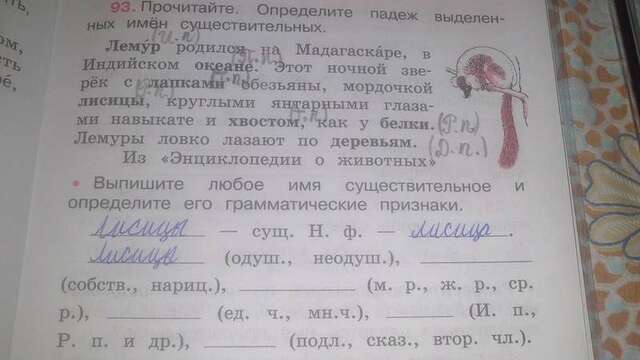 93. Прочитайте. Определите падеж выделен-
ных имён существительных.
(И.п)
Лему́р родился на Мадагаска́ре, в
Индийском океане. Этот ночной зве-
(П.п)
рёк с лапками обезьяны, мордочкой
(Т.п)
лисицы, круглыми янтарными глаза-
(Р.п)
ми навыкате и хвостом, как у белки.
(Т.п)
(Р.п)
Лемуры ловко лазают по деревьям.
(Д.п.)
Из «Энциклопедии о животных»
• Выпишите любое имя существительное и
определите его грамматические признаки.
Лисицы — сущ. Н. ф. — лисица.
Лисицы (одуш., неодуш.),
(собств., нариц.), (м. р., ж. р., ср.
р.), (ед. ч., мн.ч.). (И. п.,
Р. п. и др.), (подл., сказ., втор. чл.).